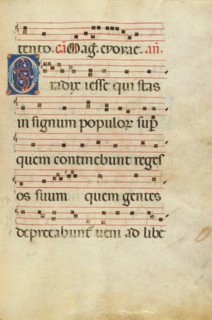 tento. cā Mag̅. evovae. añ.
O radix iesse qui stas
in signum populoꝝ sup̄
quem continebunt reges
os suum quem gentes
deprecabunt᷑ veni ad libe